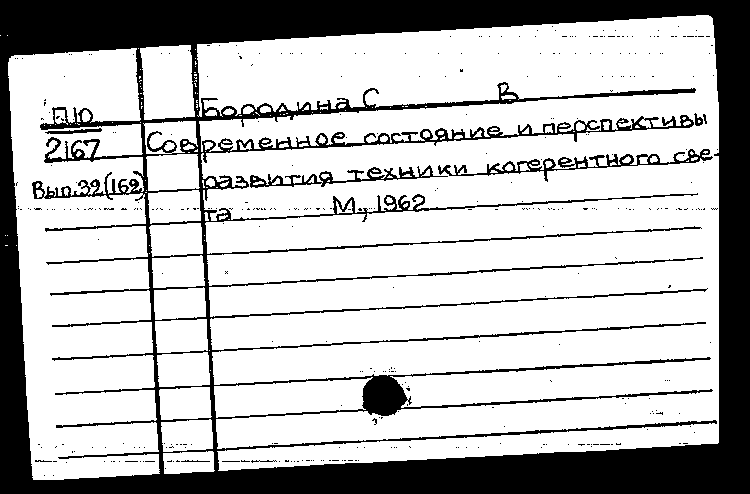 П10 Бородина С В
2167 Современное состояние и перспективы
Вып.32(162) развития техники когерентного све-
та М., 1962